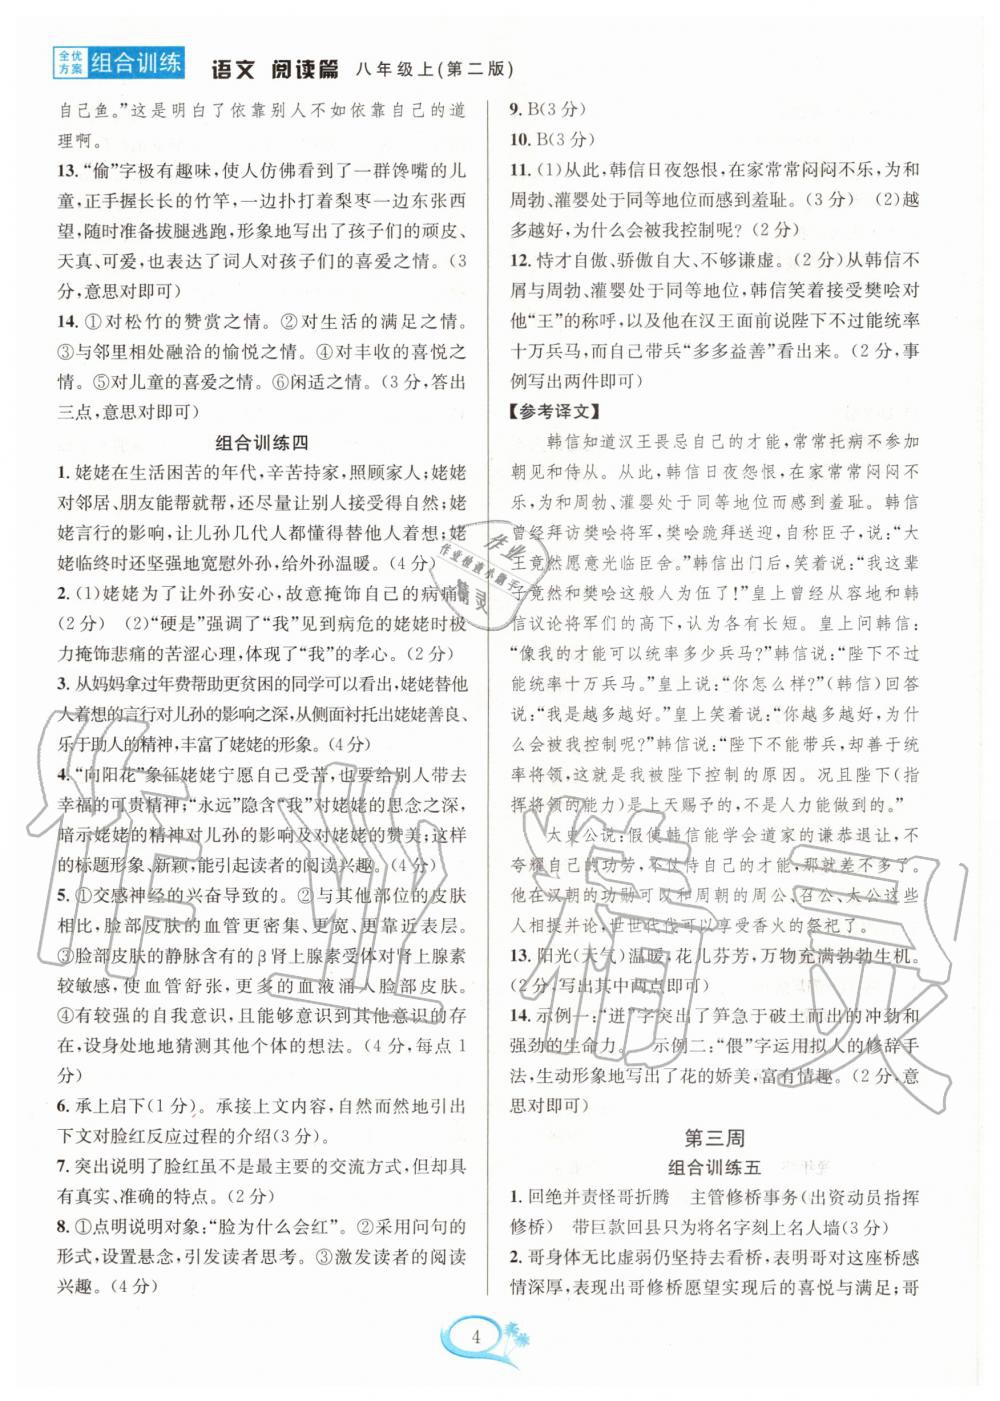 全优方案 组合训练 语文 阅读篇 八年级上(第二版)
自己鱼。”这是明白了依靠别人不如依靠自己的道
理啊。
13. “偷”字极有趣味,使人仿佛看到了一群馋嘴的儿
童,正手握长长的竹竿,一边扑打着梨枣一边东张西
望,随时准备拔腿逃跑,形象地写出了孩子们的顽皮、
天真、可爱,也表达了词人对孩子们的喜爱之情。(3
分,意思对即可)
14. ①对松竹的赞赏之情。②对生活的满足之情。
③与邻里相处融洽的愉悦之情。④对丰收的喜悦之
情。⑤对儿童的喜爱之情。⑥闲适之情。(3分,答出
三点,意思对即可)
组合训练四
1. 姥姥在生活困苦的年代,辛苦持家,照顾家人;姥姥
对邻居、朋友能帮就帮,还尽量让别人接受得自然;姥
姥言行的影响,让儿孙几代人都懂得替他人着想;姥
姥临终时还坚强地宽慰外孙,给外孙温暖。(4分)
2. (1)姥姥为了让外孙安心,故意掩饰自己的病痛。
(2分) (2)“硬是”强调了“我”见到病危的姥姥时极
力掩饰悲痛的苦涩心理,体现了“我”的孝心。(2分)
3. 从妈妈拿过年费帮助更贫困的同学可以看出,姥姥替他
人着想的言行对儿孙的影响之深,从侧面衬托出姥姥善良、
乐于助人的精神,丰富了姥姥的形象。(4分)
4. “向阳花”象征姥姥宁愿自己受苦,也要给别人带去
幸福的可贵精神;“永远”隐含“我”对姥姥的思念之深,
暗示姥姥的精神对儿孙的影响及对姥姥的赞美;这样
的标题形象、新颖,能引起读者的阅读兴趣。(4分)
5. ①交感神经的兴奋导致的。②与其他部位的皮肤
相比,脸部皮肤的血管更密集、更宽、更接近表层。
③脸部皮肤的静脉含有的β肾上腺素受体对肾上腺素
较敏感,使血管舒张,更多的血液涌入脸部皮肤。
④有较强的自我意识,且能够意识到其他个体的存
在,设身处地地猜测其他个体的想法。(4分,每点1
分)
6. 承上启下(1分)。承接上文内容,自然而然地引出
下文对脸红反应过程的介绍(3分)。
7. 突出说明了脸红虽不是最主要的交流方式,但却具
有真实、准确的特点。(2分)
8. ①点明说明对象:“脸为什么会红”。②采用问句的
形式,设置悬念,引发读者思考。③激发读者的阅读
兴趣。(4分)
9. B(3分)
10. B(3分)
11. (1)从此,韩信日夜怨恨,在家常常闷闷不乐,为和
周勃、灌婴处于同等地位感到羞耻。(3分) (2)越
多越好,为什么会被我控制呢?(2分)
12. 恃才自傲、骄傲自大、不够谦虚。(2分)从韩信不
屑与周勃、灌婴处于同等地位,韩信笑着接受樊哙对
他“王”的称呼,以及他在汉王面前说陛下不过能统率
十万兵马,而自己带兵“多多益善”看出来。(2分,事
例写出两件即可)
【参考译文】
韩信知道汉王畏忌自己的才能,常常托病不参加
朝见和侍从。从此,韩信日夜怨恨,在家常常闷闷不
乐,为和周勃、灌婴处于同等地位感到羞耻。韩信
曾经拜访樊哙将军,樊哙跪拜送迎,自称臣子,说:“大
王竟然愿意光临臣舍。”韩信出门后,笑着说:“我这辈
子竟然和樊哙这般人为伍了!”皇上曾经从容地和韩
信议论将军们的高下,认为各有长短。皇上问韩信:
“像我的才能可以统率多少兵马?”韩信说:“陛下不过
能统率十万兵马。”皇上说:“你怎么样?”(韩信)回答
说:“我是越多越好。”皇上笑着说:“你越多越好,为什
么会被我控制呢?”韩信说:“陛下不能带兵,却善于统
率将领,这就是我被陛下控制的原因。况且陛下(指
挥将领的能力)是上天赐予的,不是人力能做到的。”
太史公说:假使韩信能学会道家的谦恭退让,不
夸耀自己的功劳,不仗恃自己的才能,那就差不多了。
他在汉朝的功勋可以和周朝的周公、召公、太公这些
人相提并论,世世代代可以享受香火的祭祀了。
13. 阳光(天气)温暖,花儿芬芳,万物充满勃勃生机。
(2分,写出其中两点即可)
14. 示例一:“迸”字突出了笋急于破土而出的冲劲和
强劲的生命力。 示例二:“偎”字运用拟人的修辞手
法,生动形象地写出了花的娇美,富有情趣。(2分,意
思对即可)
第三周
组合训练五
1. 回绝并责怪哥折腾 主管修桥事务(出资动员指挥
修桥) 带巨款回县只为将名字刻上名人墙(3分)
2. 哥身体无比虚弱仍坚持去看桥,表明哥对这座桥感
情深厚,表现出哥修桥愿望实现后的喜悦与满足;哥
4
作业精灵
作业检查小助手
作业精灵